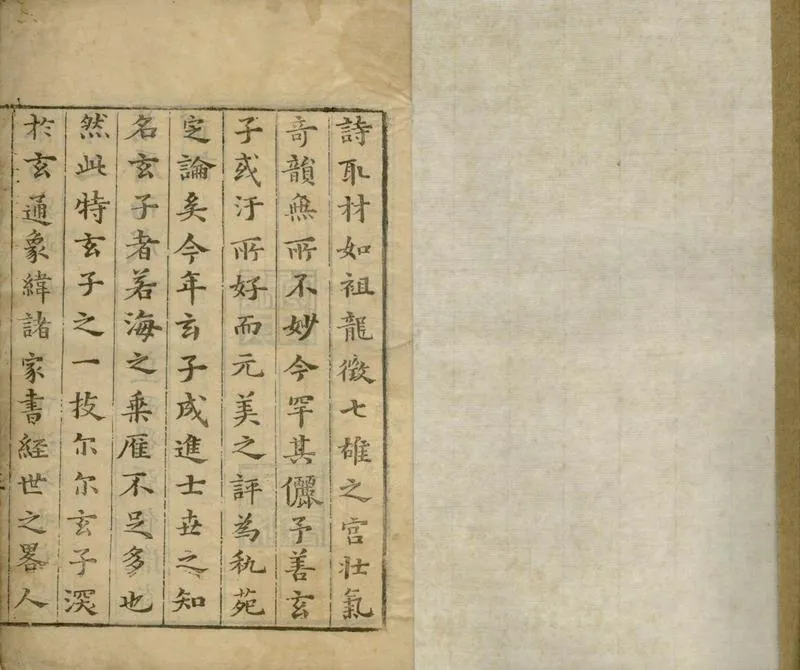 詩取材如祖龍徵七雄之宫壮氣
奇韻無所不妙今罕其儷予善玄
子或汙所好而元美之評為秇苑
定論矣今年玄子成進士世之知
名玄子者若海之乗雁不足多也
然此特玄子之一技尔尔玄子深
於玄通象緯諸家書経世之畧人